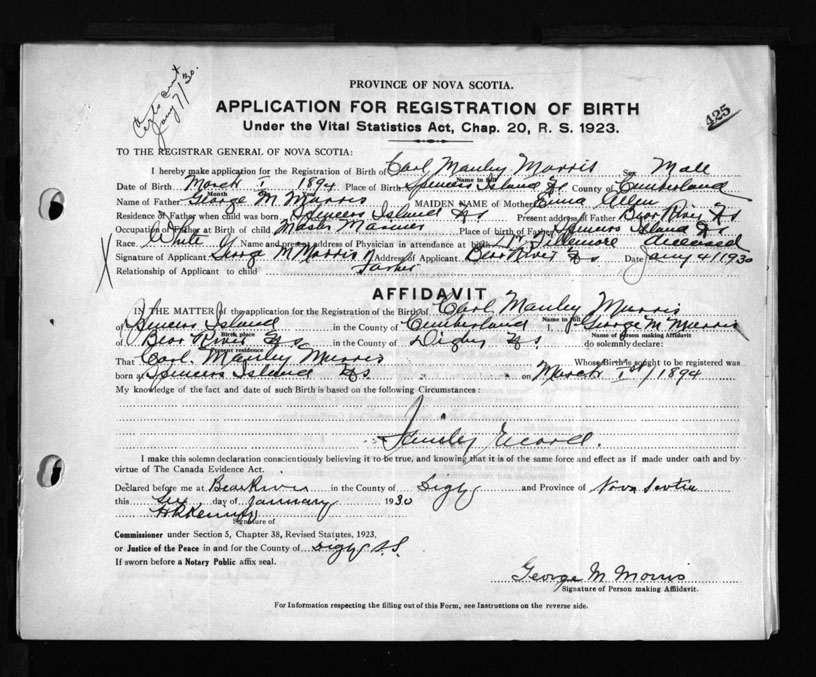 Jany 7/30.
425
PROVINCE OF NOVA SCOTIA.
APPLICATION FOR REGISTRATION OF BIRTH
Under the Vital Statistics Act, Chap. 20, R. S. 1923.
TO THE REGISTRAR GENERAL OF NOVA SCOTIA:
I hereby make application for the Registration of Birth of Carl Manley Morris Sex Male
Name in full
Date of Birth March 1 1894 Place of Birth Spencers Island NS County of Cumberland
Month
Name of Father George M Morris MAIDEN NAME of Mother Emma Allen
Residence of Father when child was born Spencers Island NS Present address of Father Bear River NS
Occupation of Father at Birth of child Master Mariner Place of birth of Father Spencers Island NS
Race White Name and present address of Physician in attendance at birth deceased
Signature of Applicant George M Morris Address of Applicant Bear River NS Date Jany 4/1930
Relationship of Applicant to child Father
AFFIDAVIT
IN THE MATTER of the application for the Registration of the Birth of Carl Manley Morris
Name in full
of Spencers Island in the County of Cumberland I, George M Morris
Birth place Name of person making Affidavit
of Bear River NS in the County of Digby NS. do solemnly declare:
Present residence
That Carl Manley Morris Whose Birth is sought to be registered was
born at Spencers Island NS. on March 1st/1894
My knowledge of the fact and date of such Birth is based on the following Circumstances:
Family Record.
I make this solemn declaration conscientiously believing it to be true, and knowing that it is of the same force and effect as if made under oath and by
virtue of The Canada Evidence Act.
Declared before me at Bear River in the County of Digby and Province of Nova Scotia
this day of January 1930
Signature of
Commissioner under Section 5, Chapter 38, Revised Statutes, 1923,
or Justice of the Peace in and for the County of Digby N.S.
If sworn before a Notary Public affix seal.
George M. Morris
Signature of Person making Affidavit.
For Information respecting the filling out of this Form, see Instructions on the reverse side.